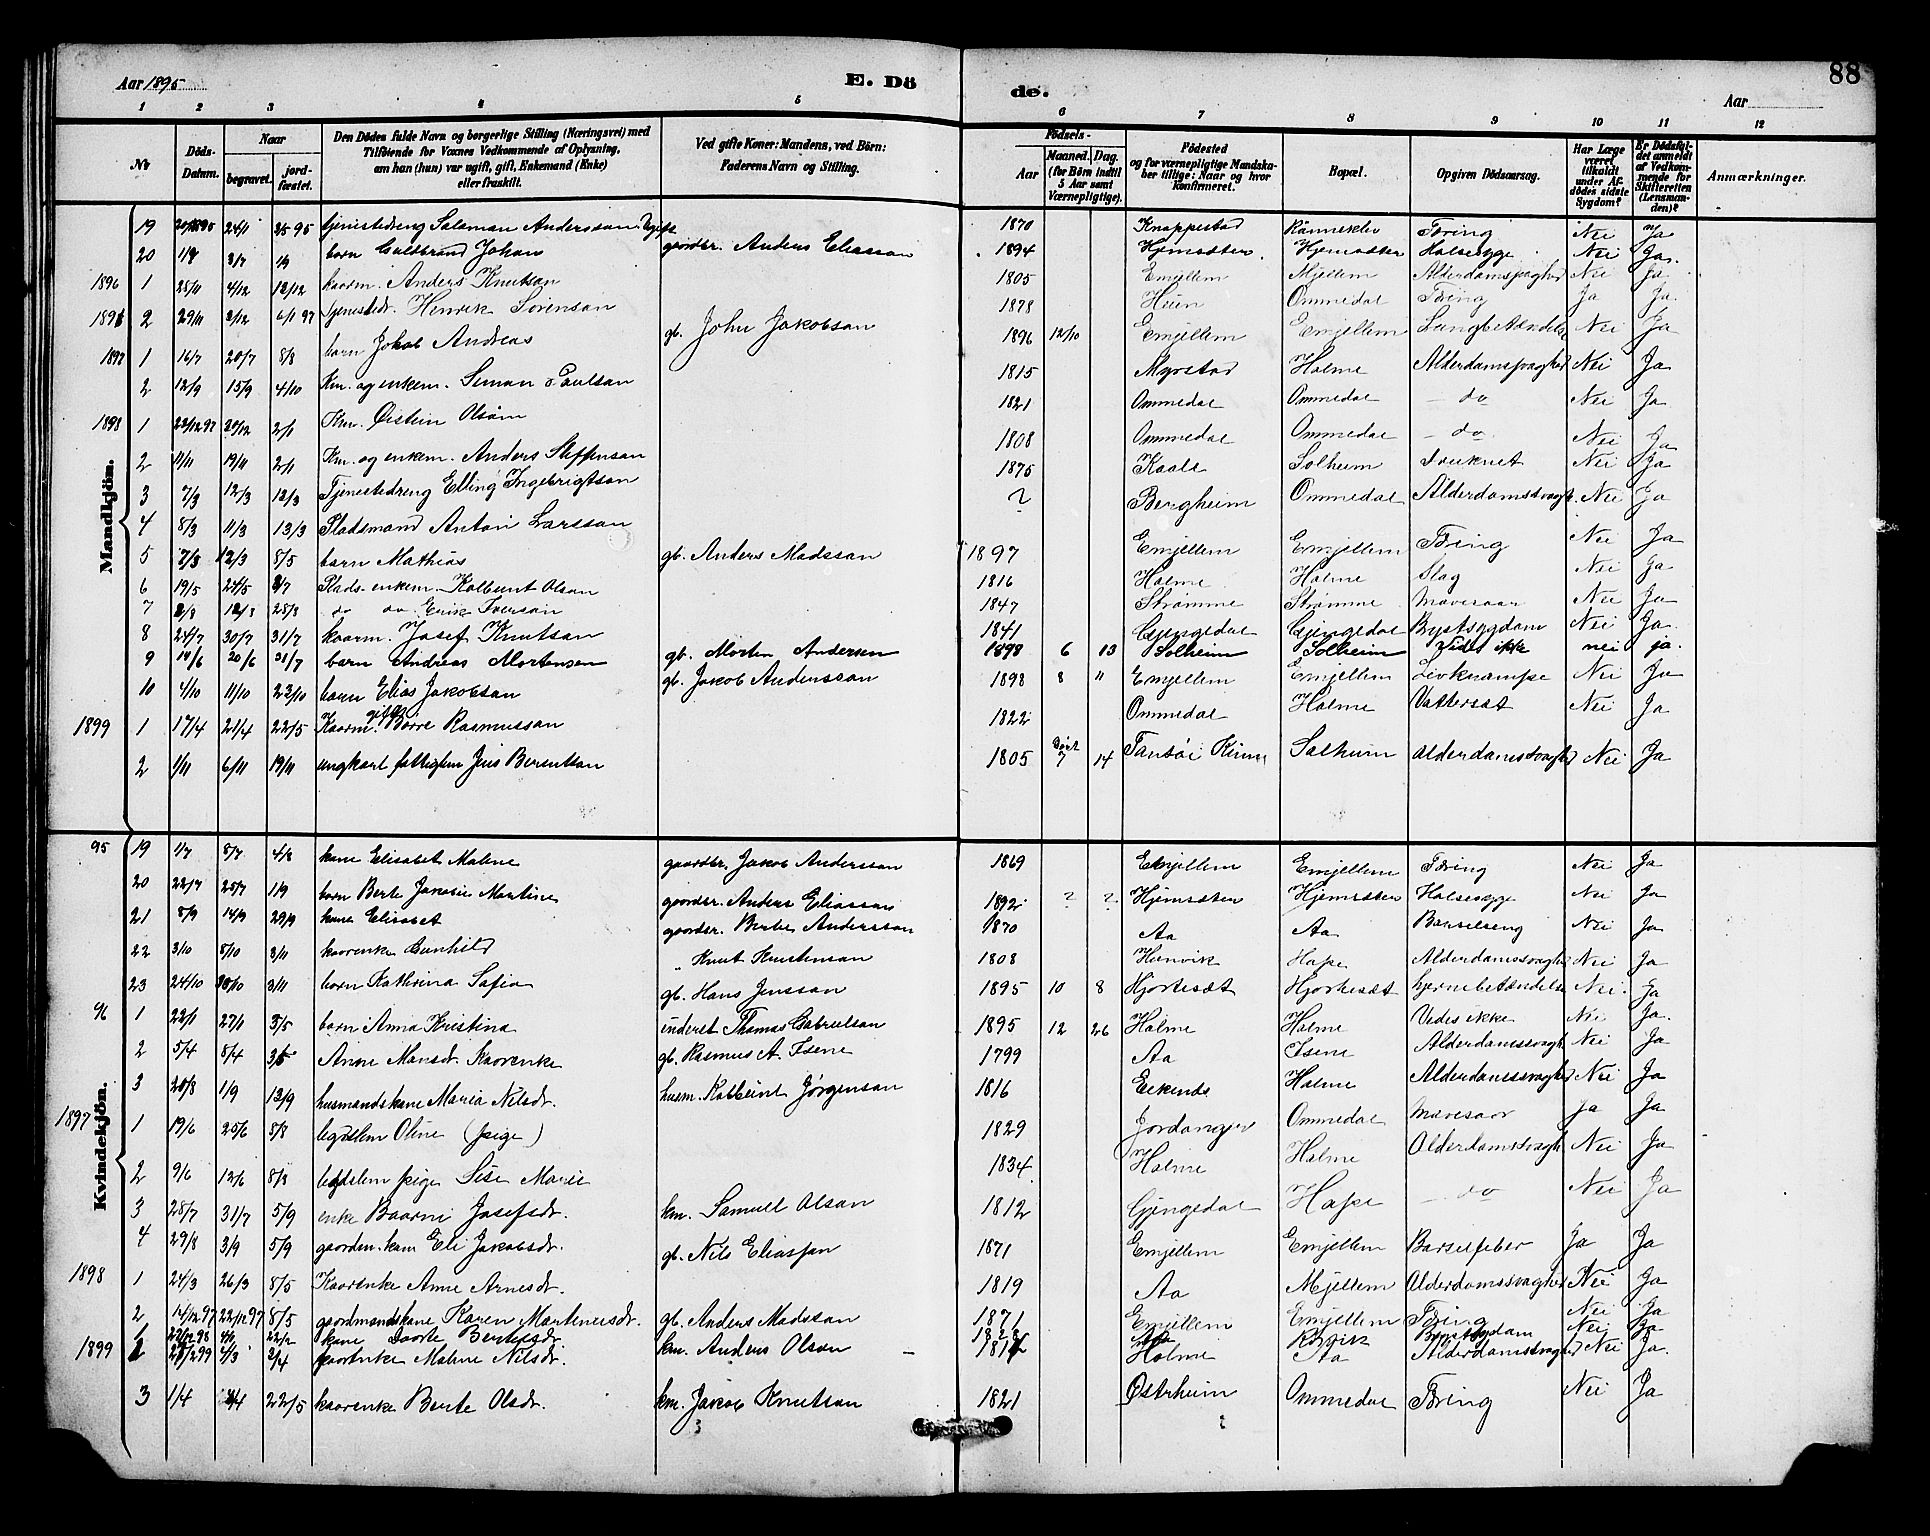 88
Aar 1895 E. Dö de. Aar
1 2 3 4 5 6 7 8 9 10 11 12
No
Döds-Datum.
Naar begravet. jordfæstet.
Den Dödes fulde Navn og borgerlige Stilling (Næringsvei) med Tilföiende for Voxnes Vedkommende af Oplysning, om han (hun) var ugift, gift, Enkemand (Enke) eller fraskilt.
Ved gifte Koner: Mandens, ved Börn: Faderens Navn og Stilling.
Födsels- Aar Maaned. Dag. (for Börn indtil 5 Aar samt Værnepligtige).
Födested og for værnepligtige Mandskaber tillige: Naar og hvor Konfirmeret.
Bopæl.
Opgiven Dödsaarsag.
Har Læge været tilkaldt under Afdödes sidste Sygdom?
Er Dödsfaldet anmeldt af Vedkommende for Skifteretten (Lensmanden)?
Anmærkninger.
Mandkjön.
19 24/11 25 95 tjenestedreng Salamon Andersson Ugift 1870 Knappestad Rånneklev Tæring Nei Ja
20 1/7 3/7 barn Guldbrand Johan gaardbr. Anders Eliasson 1894 Hjemsæter Hjemsæter Halsesyge Nei Ja
1896 1 25/11 4/12 12/12 kaarm. Anders Knutson 1805 Emjellem Mjellem Alderdomssvaghed Nei Ja
2 29/11 2/12 6/1 97 tjenestedr. Henrik Sörenson 1878 Heen Ommedal Tæring Ja Ja
1897 1 16/7 20/7 8/8 barn Jakob Andreas gb. John Jakobson 1896 12/10 Emjellem Emjellem Lungebetændelse Nei Ja
2 12/9 15/9 4/10 Km. og enkem. Simon Paulson 1815 Myrstad Holme Alderdomssvaghed Nei Ja
1898 1 22/12 97 30/12 2/1 Km. Östein Olson 1821 Ommedal Ommedal do Nei Ja
2 11/11 19/11 2/11 Km. og enkem. Anders Steffenson 1808 Ommedal Ommedal do Nei Ja
3 7/3 12/3 12/3 Tjenestedreng Elling Ingebrigtson 1875 Kaale Solheim Druknet Nei Ja
4 8/3 11/3 13/3 Pladsmand Anton Larsson ? Bergheim Ommedal Alderdomssvagh. Nei Ja
5 7/3 12/3 8/5 barn Mathias gb. Anders Madsson 1897 Emjellem Emjellem Tæring Nei Ja
6 19/5 24/5 2/7 Plads. enkem. Kolbeint Olson 1816 Holme Holme Slag Nei Ja
7 2/8 12/8 28/8 do do Erik Iverson 1847 Strømme Strømme Mavesaar Nei Ja
8 24/7 30/7 31/7 kaarm. Josef Knutson 1841 Gjengedal Gjengedal Brystsygdom Nei Ja
9 14/6 20/6 31/7 barn Andreas Mortensen gb. Morten Andersen 1898 6 13 Solheim Solheim Vides ikke nei ja
10 4/10 11/10 23/10 barn Elias Jakobson gb. Jakob Andersson 1898 8 " Emjellem Emjellem Livkrampe Nei Ja
1899 1 17/4 21/4 22/5 Kaarm. gift Börre Rasmusson 1822 Ommedal Holme Vattersot Nei Ja
2 1/11 6/11 19/11 ungkarl fattiglem Jens Berentson 1805 döbt 7 14 Tansöi Kinn Solheim Alderdomssvaghed Nei Ja
Kvindekjön.
95 19 1/7 8/7 4/8 kone Elisabet Malene gaardbr. Jakob Andersson 1869 Emjellem Emjellem Tæring Nei Ja
20 22/7 25/7 1/9 barn Berte Jakobine Martine gaardbr. Anders Eliasson 1892 ? ? Hjemsæter Hjemsæter Halsesyge Nei Ja
21 8/9 14/9 29/9 kone Elisabet gaardbr. Bertel Andersson 1870 Aa Aa Barselseng Nei Ja
22 3/10 8/10 3/11 kaarenke Gunhild " Knut Kristenson 1808 Hanvik Hope Alderdomssvaghed Nei Ja
23 24/10 30/10 3/11 barn Kathrina Sofia gb. Hans Jensson 1895 10 8 Hjortesæt Hjortesæt hjernebetændelse Nei Ja
96 1 22/1 27/1 3/5 barn Anna Kristina inderst Thomas Gabrielson 1895 12 26 Holme Holme Vides ikke Nei Ja
2 5/4 8/4 3/5 Anne Monsdr. Kaarenke gb. Rasmus A. Isene 1799 Aa Isene Alderdomssvagh Nei Ja
3 20/8 1/9 13/9 husmandskone Maria Nilsdr. husm. Kolbeint Jörgenson 1816 Eikenes Holme Alderdomssvaghed Nei Ja
1897 1 19/6 25/6 8/8 legdslem Oline (pige) 1829 Jordanger Ommedal Mavesaar Ja Ja
2 9/6 12/6 8/8 legdslem pige Sise Marie 1834 Holme Holme Alderdomssvagh Nei Ja
3 28/7 31/7 5/9 enke Baarni Josefsdr. km. Samuel Olson 1812 Gjengedal Hope do Nei Ja
4 29/8 3/9 5/9 gaardm. kone Eli Jakobsdr. gb. Nils Eliasson 1871 Emjellem Emjellem Barselfeber Ja Ja
1898 1 24/3 26/3 8/5 Kaarenke Anne Arnesdr. 1819 Aa Mjellem Alderdomssvaghed Nei Ja
2 14/12 97 22/12 97 8/5 gaardmandskone Karen Martinusdr. gb. Anders Madsson 1871 Emjellem Emjellem Tæring Nei Ja
1 22/12 98 22/2 kone Dorte Bertelsdr. Brystsygdom Nei Ja
1899 2 4/3 2/4 kaarenke Malene Nilsdr. km. Anders Olson Holme Aa Alderdomssvaghed Nei Ja
3 1/4 22/5 kaarenke Berte Olsdr. km. Jakob Knutson 1821 Østrheim Ommedal Tæring Nei Ja